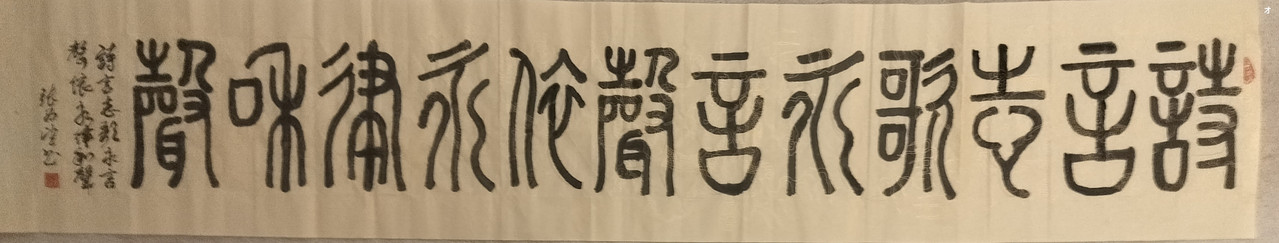 詩言志歌永言聲依永律和聲
詩言志歌永言
聲依永律和聲